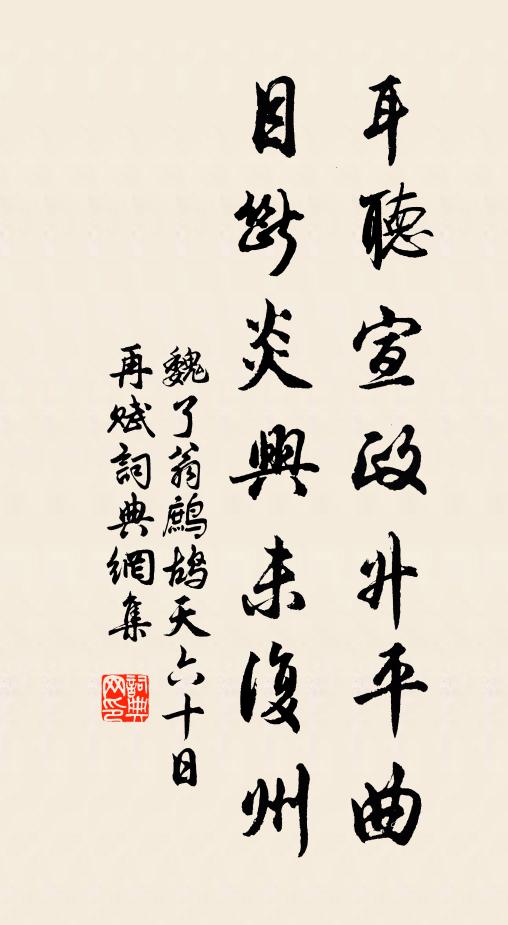 耳聽宣政升平曲
目斷炎興未復州
魏了翁鷓鴣天六十日
再賦詞典網集
詞典
网印